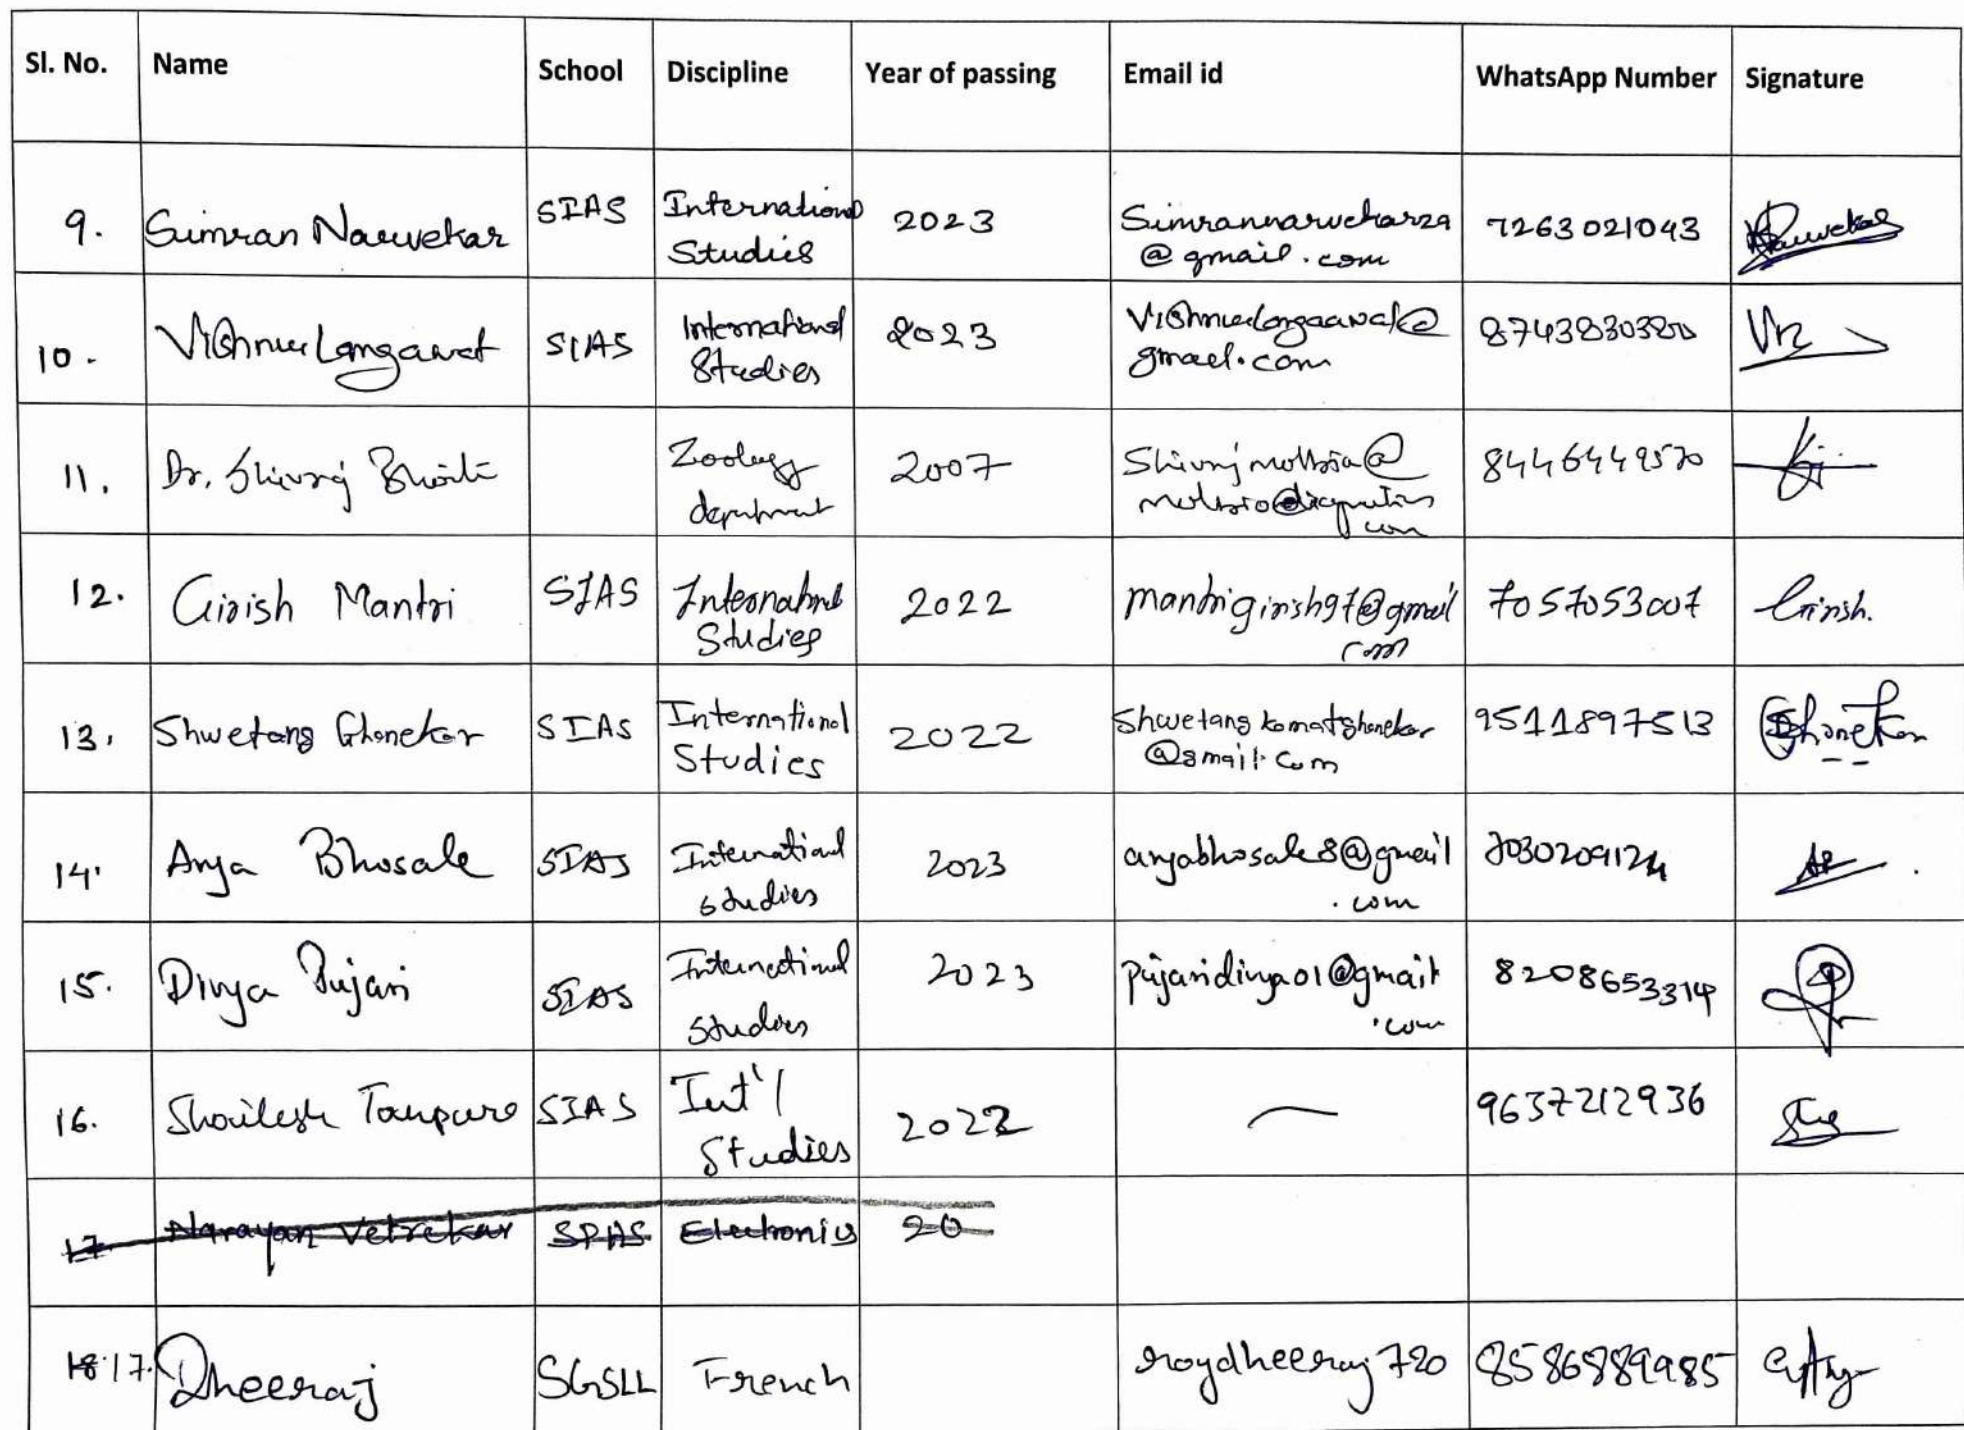 Sl. No. Name School Discipline Year of passing Email id WhatsApp Number Signature
9. Simran Narvekar SIAS International Studies 2023 Simrannarvekar29@gmail.com 7263021043 Narvekar
10. Vishnu Langawat SIAS International Studies 2023 gmail.com
11. Dr. Shivraj Zoology department 2007
12. Girish Mantri SIAS International Studies 2022 mantrigirish97@gmail com 7057053007 Girish.
13. Shwetang Ghonekar SIAS International Studies 2022 Shwetangkamatghonekar@gmail.com 9511897513 Ghonekar
14. Arya Bhosale SIAS International studies 2023 aryabhosale8@gmail.com
15. Divya Pujari SIAS International studies 2023 pujaridivya01@gmail.com 8208653314
16. Shailesh Tanpure SIAS Int'l Studies 2022 — 9637212936
17 Narayan Vetrekar SPAS Electronics 20
18 17. Dheeraj SGSLL French roydheeraj720 8586889985